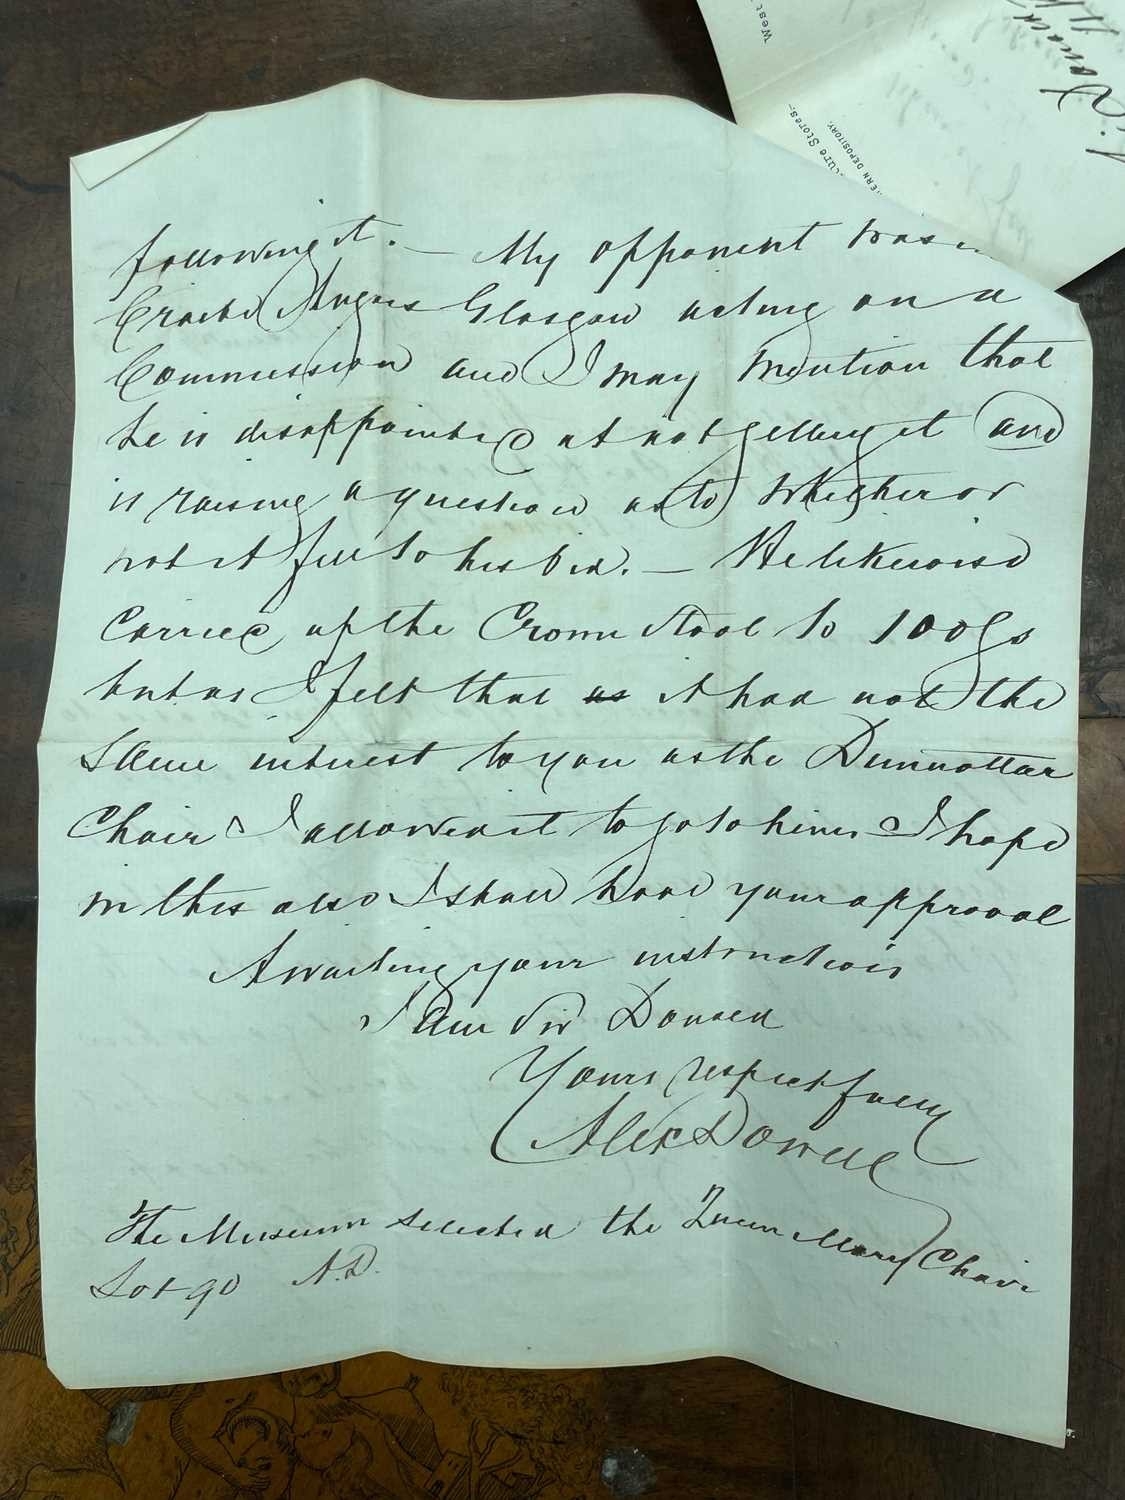 following it. — My opponent was
Craibe Angus Glasgow acting on a
Commission and I may mention that
he is disappointed at not getting it and
is raising a question as to whether or
not it fell to his bid. — He likewise
carried up the Crown Stool to 100 Gs
but as I felt that as it had not the
same interest to you as the Dunnottar
Chair I allowed it to go to him & I hope
in this also I shall have your approval
Awaiting your instructions
I am Sir Donald
Yours respectfully
Alex Dowell
The Museum selected the Queen Mary Chair
Lot 90 A.D.
West
Stores.
DEPOSITORY.